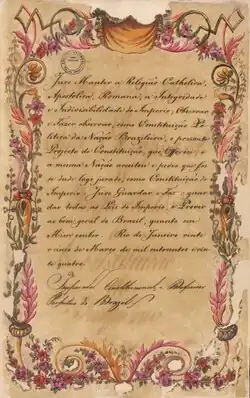 Juro Manter a Religião Catholica,
Apostolica, Romana; a Integridade
e Indivisibilidade do Imperio; Observar
e Fazer observar, como Constituição Po
litica da Nação Brazileira, o presente
Projecto de Constituição, que Offereci, e
a mesma Nação aceitou e pedio que fos
se desde logo jurado, como Constituição do
Imperio; Juro Guardar e faser guar
dar todas as Leis do Imperio, e Prover
ao bem geral do Brazil, quanto em
Mim couber. Rio de Janeiro vinte
e cinco de Março de mil oitocentos vin
te quatro.
Imperador Constitucional e Defensor
Perpetuo do Brazil